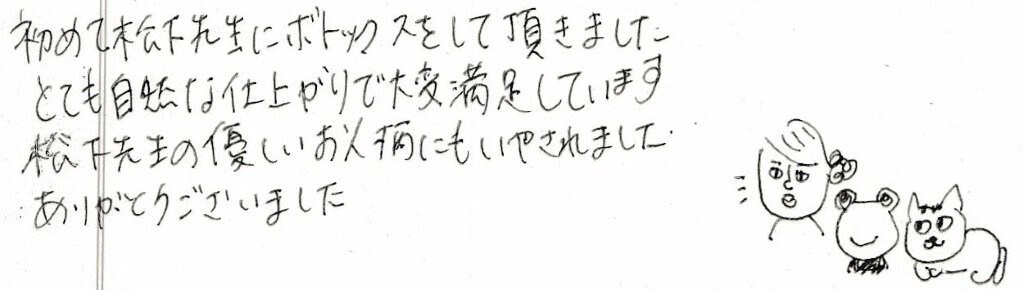 初めて松下先生にボトックスをして頂きました
とても自然な仕上がりで大変満足しています
松下先生の優しいお人柄にもいやされました.
ありがとうございました